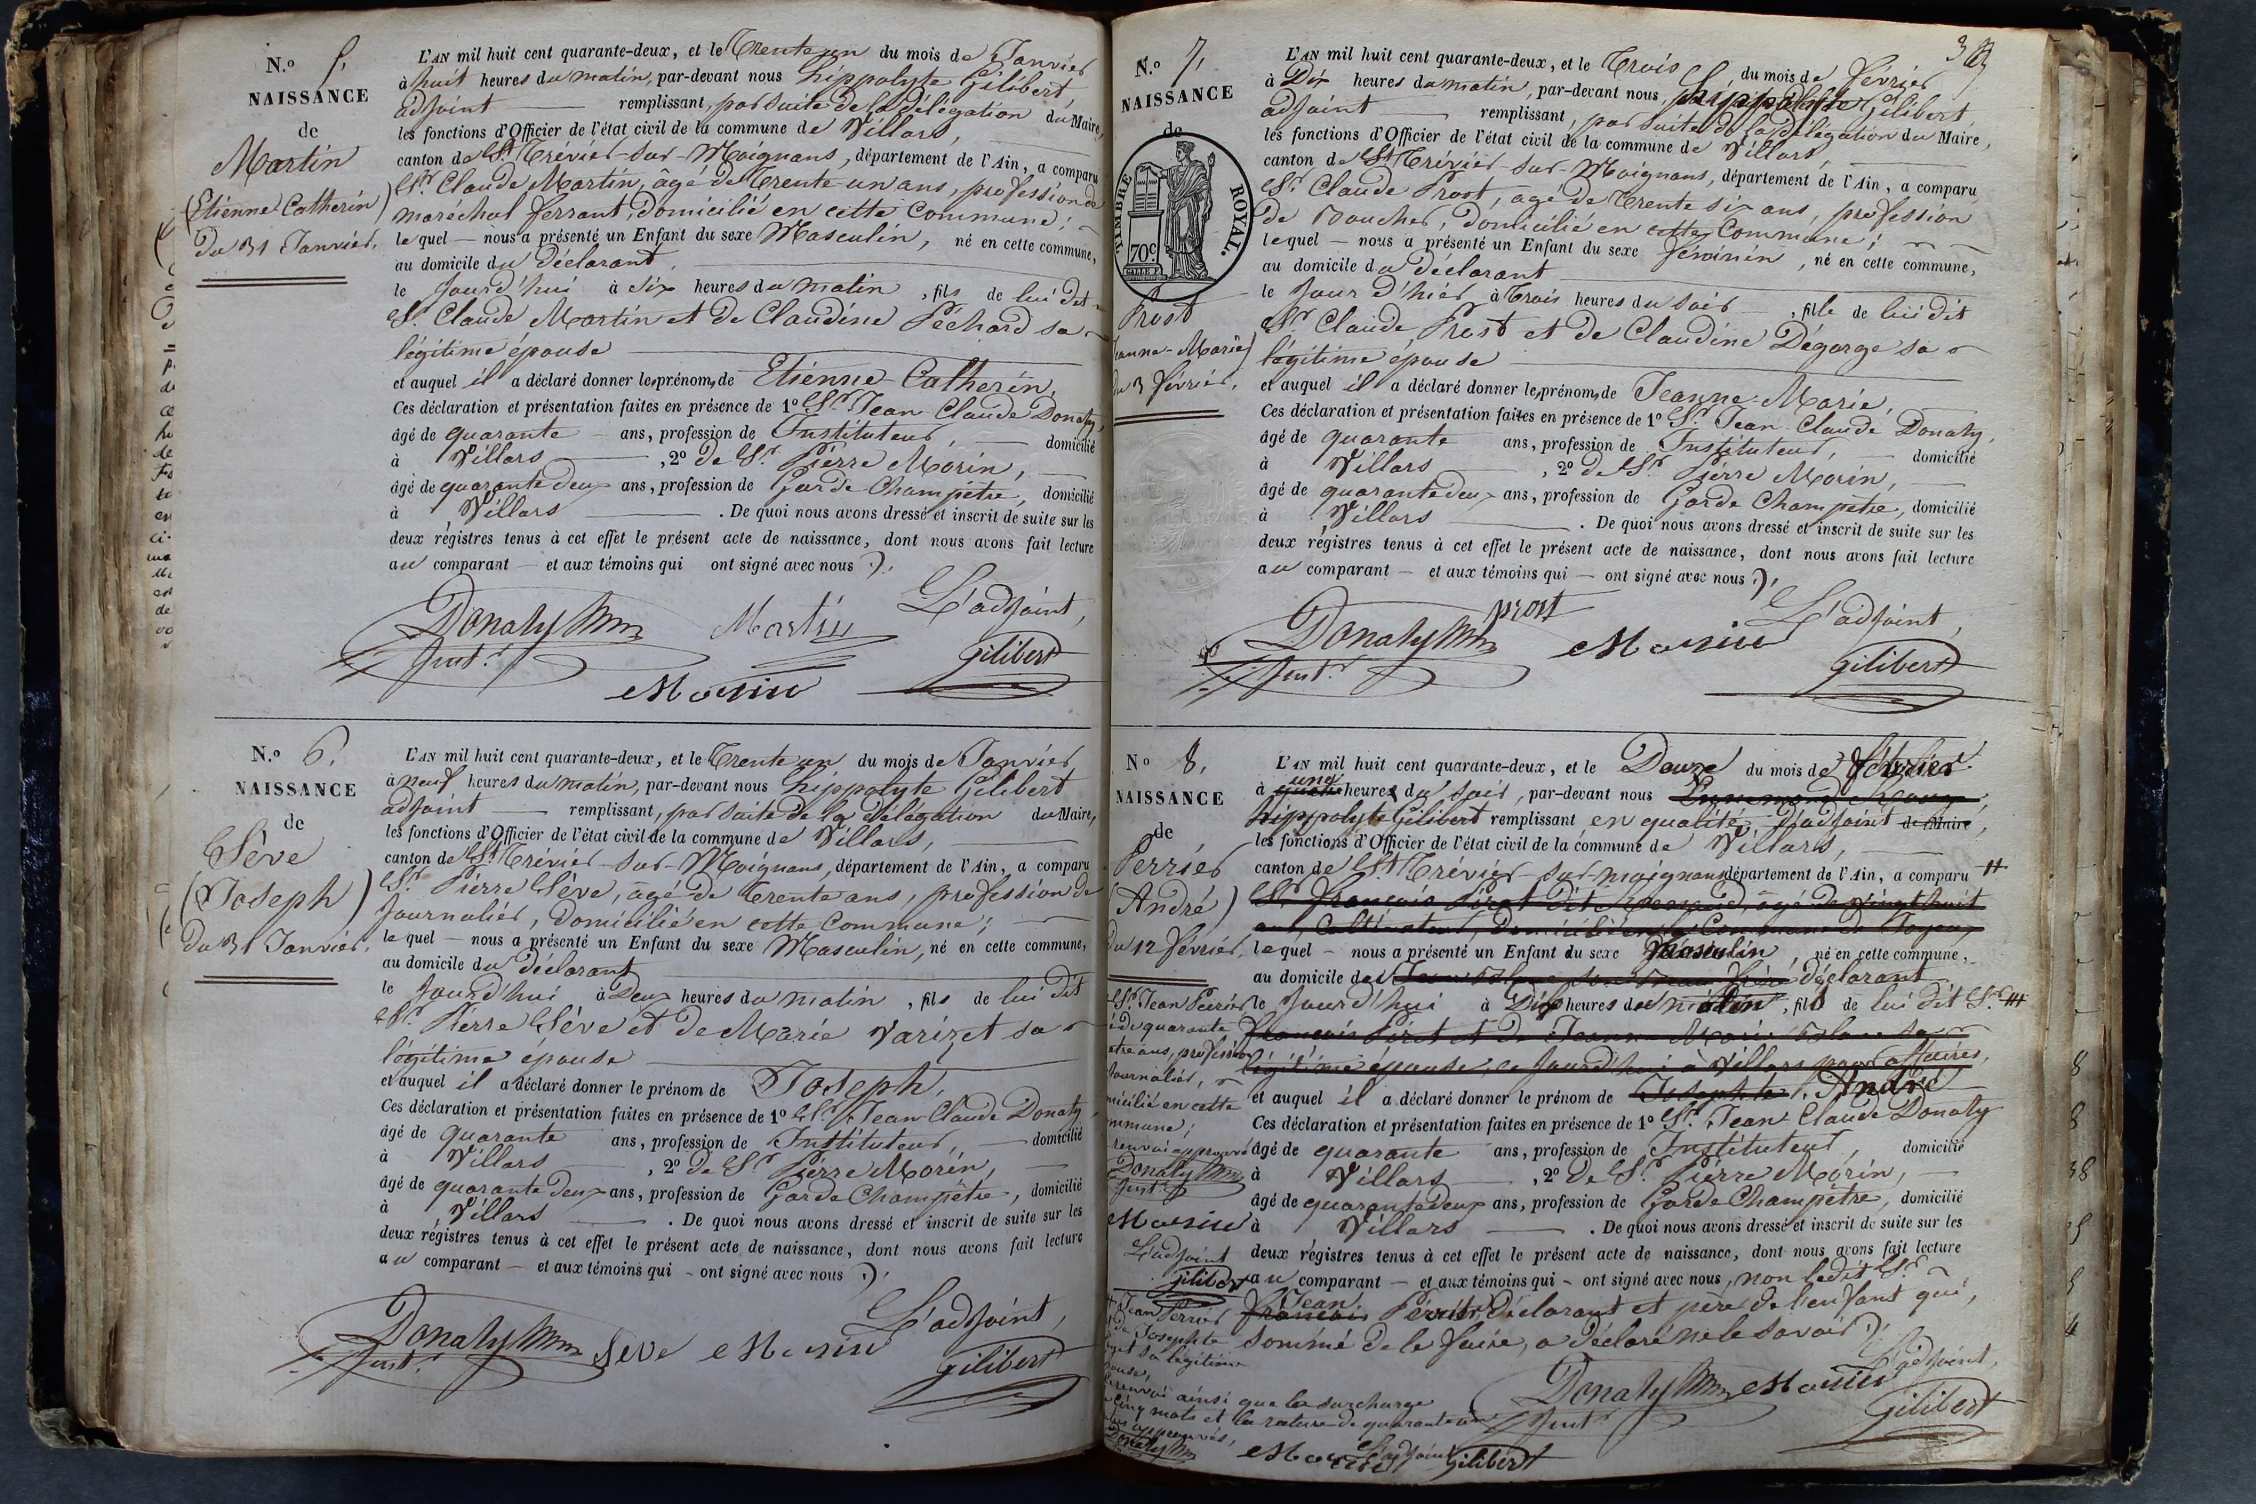 N.o 5.
NAISSANCE
de
Martin
(Etienne Catherin)
du 31 Janvier.
L'AN mil huit cent quarante-deux, et le Trente un du mois de Janvier
à huit heures du matin, par-devant nous hippolyte Gilibert
adjoint remplissant, par suite de la délégation du Maire,
les fonctions d'Officier de l'état civil de la commune de Villars,
canton de St. Trévier-sur-Moignans, département de l'Ain, a comparu
Sr. Claude Martin, âgé de Trente un ans, profession de
maréchal ferrant, domicilié en cette commune;
lequel — nous a présenté un Enfant du sexe Masculin, né en cette commune,
au domicile du déclarant
le Jourd'hui à Six heures du matin, fils de lui dit
Sr. Claude Martin et de Claudine Péchard sa
légitime épouse
et auquel il a déclaré donner les prénoms de Etienne Catherin,
Ces déclaration et présentation faites en présence de 1o Sr. Jean Claude Donaty,
âgé de quarante ans, profession de Instituteur, domicilié
à Villars, 2o de Sr. Pierre Morin,
âgé de quarante deux ans, profession de Garde Champêtre, domicilié
à Villars. De quoi nous avons dressé et inscrit de suite sur les
deux régistres tenus à cet effet le présent acte de naissance, dont nous avons fait lecture
au comparant — et aux témoins qui ont signé avec nous
Donaty Martin L'adjoint,
Inst.r Morin Gilibert
N.o 6.
NAISSANCE
de
Sève
(Joseph)
du 31 Janvier.
L'AN mil huit cent quarante-deux, et le Trente un du mois de Janvier
à neuf heures du matin, par-devant nous hippolyte Gilibert
adjoint remplissant, par suite de la délégation du Maire,
les fonctions d'Officier de l'état civil de la commune de Villars,
canton de St. Trévier-sur-Moignans, département de l'Ain, a comparu
Sr. Pierre Sève, âgé de Trente ans, profession de
Journalier, domicilié en cette commune;
lequel — nous a présenté un Enfant du sexe Masculin, né en cette commune,
au domicile du déclarant
le Jourd'hui à Deux heures du matin, fils de lui dit
Sr. Pierre Sève et de Marie Varizet sa
légitime épouse
et auquel il a déclaré donner le prénom de Joseph,
Ces déclaration et présentation faites en présence de 1o Sr. Jean Claude Donaty,
âgé de quarante ans, profession de Instituteur, domicilié
à Villars, 2o de Sr. Pierre Morin,
âgé de quarante deux ans, profession de Garde Champêtre, domicilié
à Villars. De quoi nous avons dressé et inscrit de suite sur les
deux régistres tenus à cet effet le présent acte de naissance, dont nous avons fait lecture
au comparant — et aux témoins qui - ont signé avec nous
Donaty Seve Morin L'adjoint,
Inst.r Gilibert
N.o 7.
NAISSANCE
de
TIMBRE ROYAL.
70c
Prost
Jeanne-Marie)
du 3 février.
L'AN mil huit cent quarante-deux, et le Trois du mois de février
à Dix heures du matin, par-devant nous, hippolyte Gilibert
adjoint remplissant, par suite de la délégation du Maire,
les fonctions d'Officier de l'état civil de la commune de Villars,
canton de St. Trévier-sur-Moignans, département de l'Ain, a comparu
Sr. Claude Prost, âgé de Trente six ans, profession
de Boucher, domicilié en cette Commune;
lequel — nous a présenté un Enfant du sexe féminin, né en cette commune,
au domicile du déclarant
le Jour d'hier à Trois heures du soir, fille de lui dit
Sr. Claude Prost et de Claudine Dégorge sa
légitime épouse
et auquel il a déclaré donner les prénoms de Jeanne-Marie,
Ces déclaration et présentation faites en présence de 1o Sr. Jean Claude Donaty,
âgé de quarante ans, profession de Instituteur, domicilié
à Villars, 2o de Sr. Pierre Morin,
âgé de quarante deux ans, profession de Garde Champêtre, domicilié
à Villars. De quoi nous avons dressé et inscrit de suite sur les
deux régistres tenus à cet effet le présent acte de naissance, dont nous avons fait lecture
au comparant — et aux témoins qui — ont signé avec nous
Donaty prost Morin L'adjoint,
Inst.r Gilibert
No 8.
NAISSANCE
de
Perrier
(André)
du 12 février.
L'AN mil huit cent quarante-deux, et le Douze du mois de février
à une heure du soir, par-devant nous
hippolyte Gilibert remplissant en qualité d'adjoint de Maire,
les fonctions d'Officier de l'état civil de la commune de Villars,
canton de St. Trévier-sur-moignans département de l'Ain, a comparu #
Sr. françois Piret dit âgé de vingt huit
ans, Cultivateur, domicilié en la Commune de
lequel — nous a présenté un Enfant du sexe Masculin, né en cette commune,
au domicile du déclarant
le Jourd'hui à Dix heures du matin, fils de lui dit Sr. #
françois Piret et de Jeanne Marie sa
légitime épouse, ce Jourd'hui à Villars pour affaires,
et auquel il a déclaré donner le prénom de Josephte André
Ces déclaration et présentation faites en présence de 1o Sr. Jean Claude Donaty
âgé de quarante ans, profession de Instituteur, domicilié
à Villars, 2o de Sr. Pierre Morin,
âgé de quarante deux ans, profession de Garde Champêtre, domicilié
à Villars. De quoi nous avons dressé et inscrit de suite sur les
deux régistres tenus à cet effet le présent acte de naissance, dont nous avons fait lecture
au comparant — et aux témoins qui - ont signé avec nous, non ledit Sr.
françois Jean Perrier déclarant et père de l'enfant qui,
sommé de le faire, a déclaré ne le savoir
Donaty Morin L'adjoint,
Inst.r Gilibert
Sr. Jean Perrier
de quarante
ans, profession
Journalier,
domicilié en cette
commune;
renvoi approuvé
Donaty
Inst.r
Morin
L'adjoint
Gilibert
Jean Perrier
de Josephte
sa légitime
épouse,
renvoi ainsi que la surcharge
cinq mots et la rature de quarante
approuvés,
Donaty Morin L'adjoint Gilibert